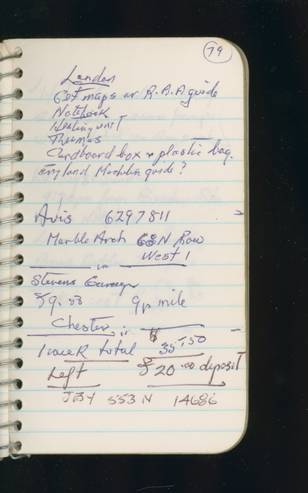 79
London
Get maps or R.A.A guide
Notebook
Heating unit
Thermos
Cardboard box + plastic bag.
England Michelin guide?
Avis 6297811
Marble Arch 68 N Row
West 1
Stevens
59.00 9p mile
Chester
1 week total 35.50
Left £20.00 deposit
JBY 553N 14686